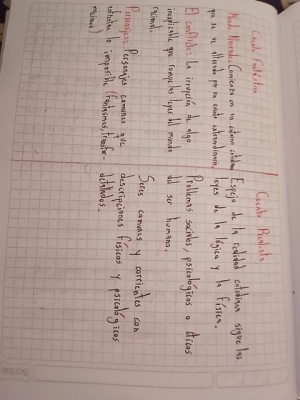 Cuento Fantástico
Cuento Realista
Mundo Narrado: Comienza en un entorno cotidiano
que se ve alterado por un evento extraordinario.
Espejo de la realidad cotidiana sigue las
leyes de la lógica y la física.
El conflicto: La irrupción de algo
inexplicable que rompe las leyes del mundo
racional.
Problemas sociales, psicológicos o éticos
del ser humano.
Personajes: Personajes comunes que
enfrentan lo imposible (fantasmas, transfor-
Seres comunes y corrientes con
descripciones físicas y psicológicas
detalladas.